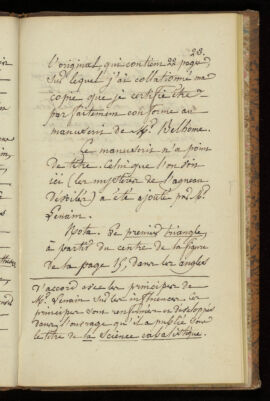 28.
l'original qui contient 22 pages
sur lequel j'ai collationné ma
copie que je certifie être
parfaitement conforme au
manuscrit de Mr. Belhome.
Ce manuscrit n'a point
de titre. Celui que l'on voit
ici (les mystères de l'agneau
dévoilés) a été ajouté par Mr.
Lenain.
Nota. Le premier triangle,
à partir du centre de la figure
de la page 15, dans les angles
d'accord avec les principes de
Mr. Lenain sur les influences; ces
principes sont renfermés et développés
dans l'ouvrage qu'il a publié sous
le titre de la Science cabalistique.